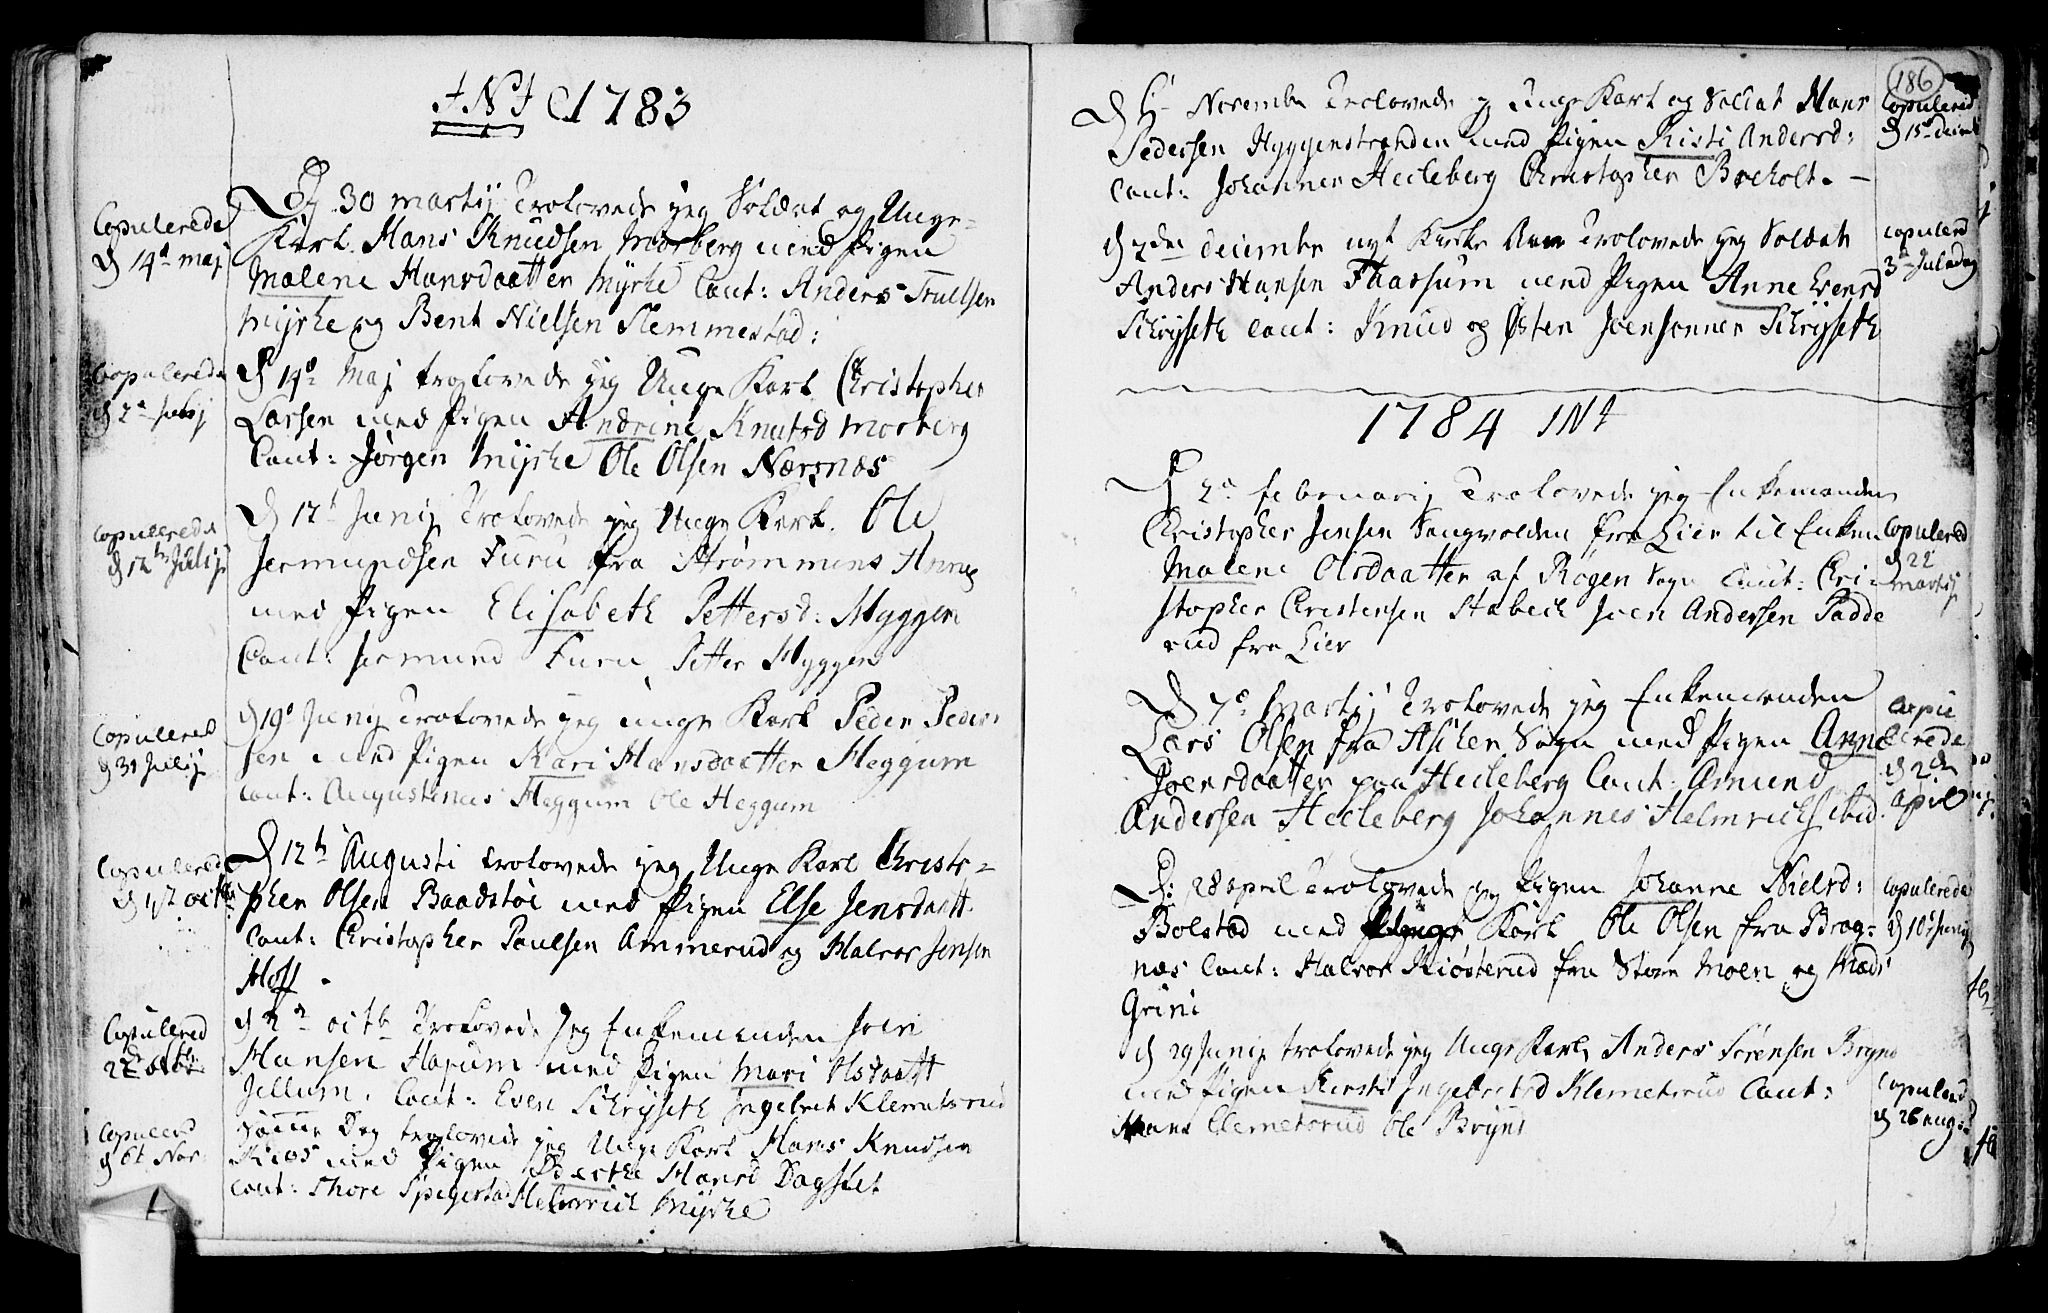 J N J 1783
Copulerede
d 14de maj
D 30 martij Trolovede jeg Soldat og Unge-
Karl Hans Knudsen Morberg med Pigen
Malene Hansdaatter Myrhe Caut: Anders Truelsen
Myrhe og Bent Nielsen Slemmestad:
Copulerede
d 2de Julij
D 14de Maj trolovede jeg Unge Karl Christopher
Larsen med Pigen Andrine Knutsd Morberg
Caut: Jørgen Myrhe Ole Olsen Nærsnæs
Copulerede
d 12te Julij
D 12te Junij Trolovede jeg Unge Karl. Ole
Jermundsen Furu fra Strømmens Annex
med Pigen Elisabeth Pettersd: Hyggen
Caut: Jermund Furu, Petter Hyggen
Copulered
d 31 Julij
d 19de Junij Trolovede jeg unge Karl Peder Peder-
sen med Pigen Kari Hansdaatter Heggum
Caut: Augustinus Heggum Ole Heggum
Copulerede
d 1ste octb
D 12te Augusti trolovede jeg Unge Karl Christo-
pher Olsen Baadstøe med Pigen Else Jensdaatt.
Caut: Christopher Paulsen Ammerud og Halvor Jensen
Hoff.
Copulered
22de octbr
d 2de octb Trolovede Jeg Enkemanden Joen
Hansen Hajum med Pigen Mari Olsdaatt
Jellum. Caut: Even Schryseth Ingebret Klemetsrud
Copulered
d 6t Nov
samme Dag trolovede jeg Unge Karl Hans Knudsen
Kios med Pigen Dorthe Hansd Dagslet
Caut: Thore Spegerstad Helmrich Myrhe
186
D 6te November Trolovede jeg Unge Karl og Soldat Hans
Pedersen Hyggenstranden med Pigen Kisti Andersd:
Caut: Johannes Heileberg Christopher Bøeholt. -
Copulered
d 15de decemb
d 7den decembr nyt Kirke Aar Trolovede jeg Soldat
Anders Hansen Thaasum med Pigen Anne Evensd
Schryseth caut: Knud og Østen Joensønner Schryseth
copulered
3de Juledag
1784 JNJ
D 2de februarij Trolovede jeg Enkemanden
Christopher Jensen Sangvolden fra Lier til Enken
Malene Olsdaatter af Røgen Sogn Caut: Chri-
stopher Christensen Stabech Joen Andersen Padde
rud fra Lier
Copulered
d 22
martij
D 7de Martij Trolovede jeg Enkemanden
Lars Olsen fra Ascher Sogn med Pigen Anne
Joensdaatter paa Heileberg Caut: Amund
Andersen Heileberg Johannes Helmrichs ibid.
Copu
lerede
d 2den
April
D: 28 april Trolovede jeg Pigen Johanne Nielsd:
Bolstad med Unge Karl Ole Olsen fra Brag-
næs Caut: Halvor Kiøsterud fra Store Moen og Mads
Grini
Copulerede
d 10de Junij
d 29 Junij trolovede jeg Unge Karl Anders Sørensen Bryns
med Pigen Kirsti Ingebretsd Klemetsrud Caut:
Hans Clemetsrud Ole Bryns
Copulered
d 26 aug: